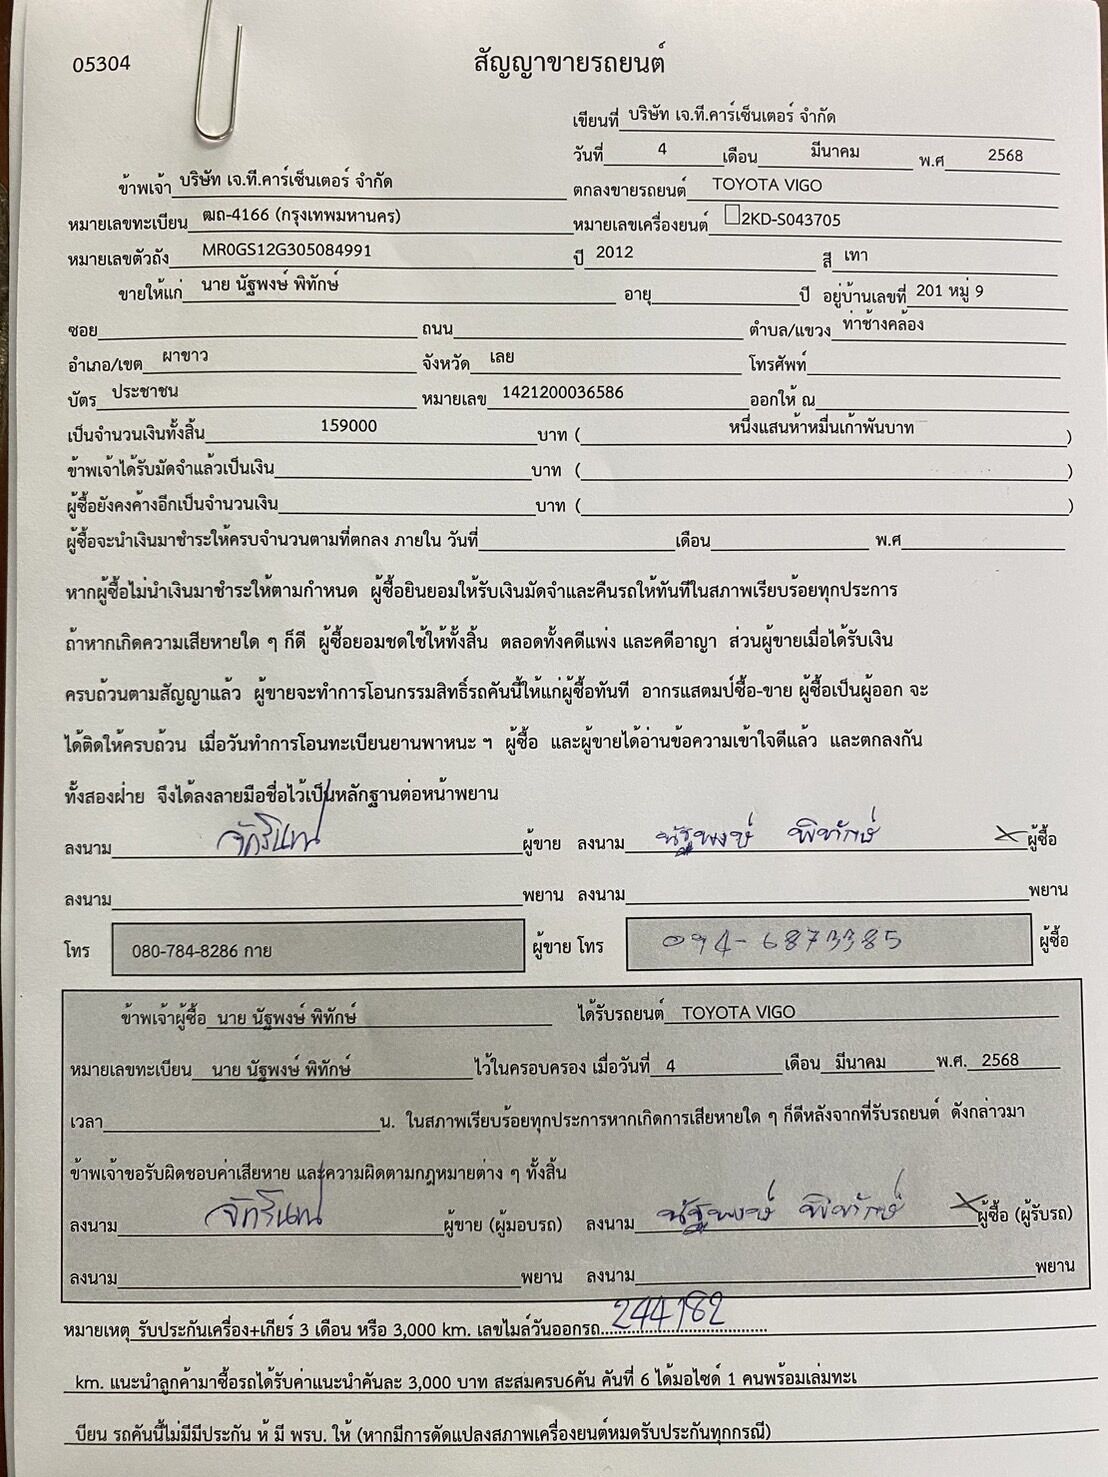 05304
สัญญาขายรถยนต์
เขียนที่ บริษัท เจ.ที.คาร์เซ็นเตอร์ จำกัด
วันที่ 4 เดือน มีนาคม พ.ศ 2568
ข้าพเจ้า บริษัท เจ.ที.คาร์เซ็นเตอร์ จำกัด ตกลงขายรถยนต์ TOYOTA VIGO
หมายเลขทะเบียน ฒถ-4166 (กรุงเทพมหานคร) หมายเลขเครื่องยนต์ 2KD-S043705
หมายเลขตัวถัง MR0GS12G305084991 ปี 2012 สี เทา
ขายให้แก่ นาย นัฐพงษ์ พิทักษ์ อายุ ปี อยู่บ้านเลขที่ 201 หมู่ 9
ซอย ถนน ตำบล/แขวง ท่าช้างคล้อง
อำเภอ/เขต ผาขาว จังหวัด เลย โทรศัพท์
บัตร ประชาชน หมายเลข 1421200036586 ออกให้ ณ
เป็นจำนวนเงินทั้งสิ้น 159000 บาท ( หนึ่งแสนห้าหมื่นเก้าพันบาท )
ข้าพเจ้าได้รับมัดจำแล้วเป็นเงิน บาท ( )
ผู้ซื้อยังคงค้างอีกเป็นจำนวนเงิน บาท ( )
ผู้ซื้อจะนำเงินมาชำระให้ครบจำนวนตามที่ตกลง ภายใน วันที่ เดือน พ.ศ
หากผู้ซื้อไม่นำเงินมาชำระให้ตามกำหนด ผู้ซื้อยินยอมให้รับเงินมัดจำและคืนรถให้ทันทีในสภาพเรียบร้อยทุกประการ
ถ้าหากเกิดความเสียหายใด ๆ ก็ดี ผู้ซื้อยอมชดใช้ให้ทั้งสิ้น ตลอดทั้งคดีแพ่ง และคดีอาญา ส่วนผู้ขายเมื่อได้รับเงิน
ครบถ้วนตามสัญญาแล้ว ผู้ขายจะทำการโอนกรรมสิทธิ์รถคันนี้ให้แก่ผู้ซื้อทันที อากรแสตมป์ซื้อ-ขาย ผู้ซื้อเป็นผู้ออก จะ
ได้ติดให้ครบถ้วน เมื่อวันทำการโอนทะเบียนยานพาหนะ ฯ ผู้ซื้อ และผู้ขายได้อ่านข้อความเข้าใจดีแล้ว และตกลงกัน
ทั้งสองฝ่าย จึงได้ลงลายมือชื่อไว้เป็นหลักฐานต่อหน้าพยาน
ลงนาม ผู้ขาย ลงนาม นัฐพงษ์ พิทักษ์ ผู้ซื้อ
ลงนาม พยาน ลงนาม พยาน
โทร 080-784-8286 กาย ผู้ขาย โทร 094-6873385 ผู้ซื้อ
ข้าพเจ้าผู้ซื้อ นาย นัฐพงษ์ พิทักษ์ ได้รับรถยนต์ TOYOTA VIGO
หมายเลขทะเบียน นาย นัฐพงษ์ พิทักษ์ ไว้ในครอบครอง เมื่อวันที่ 4 เดือน มีนาคม พ.ศ. 2568
เวลา น. ในสภาพเรียบร้อยทุกประการหากเกิดการเสียหายใด ๆ ก็ดีหลังจากที่รับรถยนต์ ดังกล่าวมา
ข้าพเจ้าขอรับผิดชอบค่าเสียหาย และความผิดตามกฎหมายต่าง ๆ ทั้งสิ้น
ลงนาม ผู้ขาย (ผู้มอบรถ) ลงนาม นัฐพงษ์ พิทักษ์ ผู้ซื้อ (ผู้รับรถ)
ลงนาม พยาน ลงนาม พยาน
หมายเหตุ รับประกันเครื่อง+เกียร์ 3 เดือน หรือ 3,000 km. เลขไมล์วันออกรถ 244182
km. แนะนำลูกค้ามาซื้อรถได้รับค่าแนะนำคันละ 3,000 บาท สะสมครบ6คัน คันที่ 6 ได้มอไซด์ 1 คนพร้อมเล่มทะเ
บียน รถคันนี้ไม่มีมีประกัน ห้ มี พรบ. ให้ (หากมีการดัดแปลงสภาพเครื่องยนต์หมดรับประกันทุกกรณี)